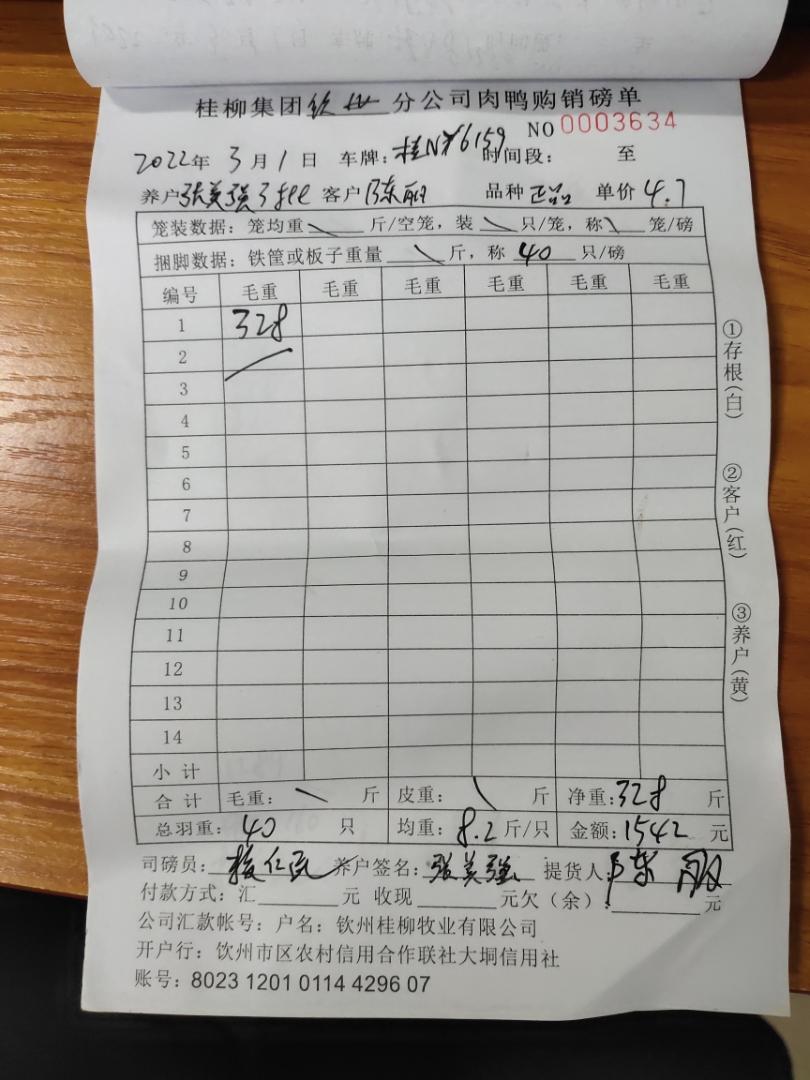 桂柳集团钦州分公司肉鸭购销磅单
NO 0003634
2022年3月1日 车牌:桂N 6159 时间段: 至
养户张美强 客户陈丽 品种 正品 单价 4.7
笼装数据:笼均重 \ 斤/空笼,装 \ 只/笼,称 \ 笼/磅
捆脚数据:铁筐或板子重量 \ 斤,称 40 只/磅
编号 毛重 毛重 毛重 毛重 毛重 毛重
1 328
2
3
4
5
6
7
8
9
10
11
12
13
14
小计
合计 毛重: \ 斤 皮重: \ 斤 净重:328 斤
总羽重:40 只 均重:8.2 斤/只 金额:1542 元
司磅员: 养户签名:张美强 提货人陈丽
付款方式:汇 元 收现 元欠(余): 元
公司汇款帐号:户名:钦州桂柳牧业有限公司
开户行:饮州市区农村信用合作联社大垌信用社
账号:8023 1201 0114 4296 07
①存根(白)
②客户(红)
③养户(黄)